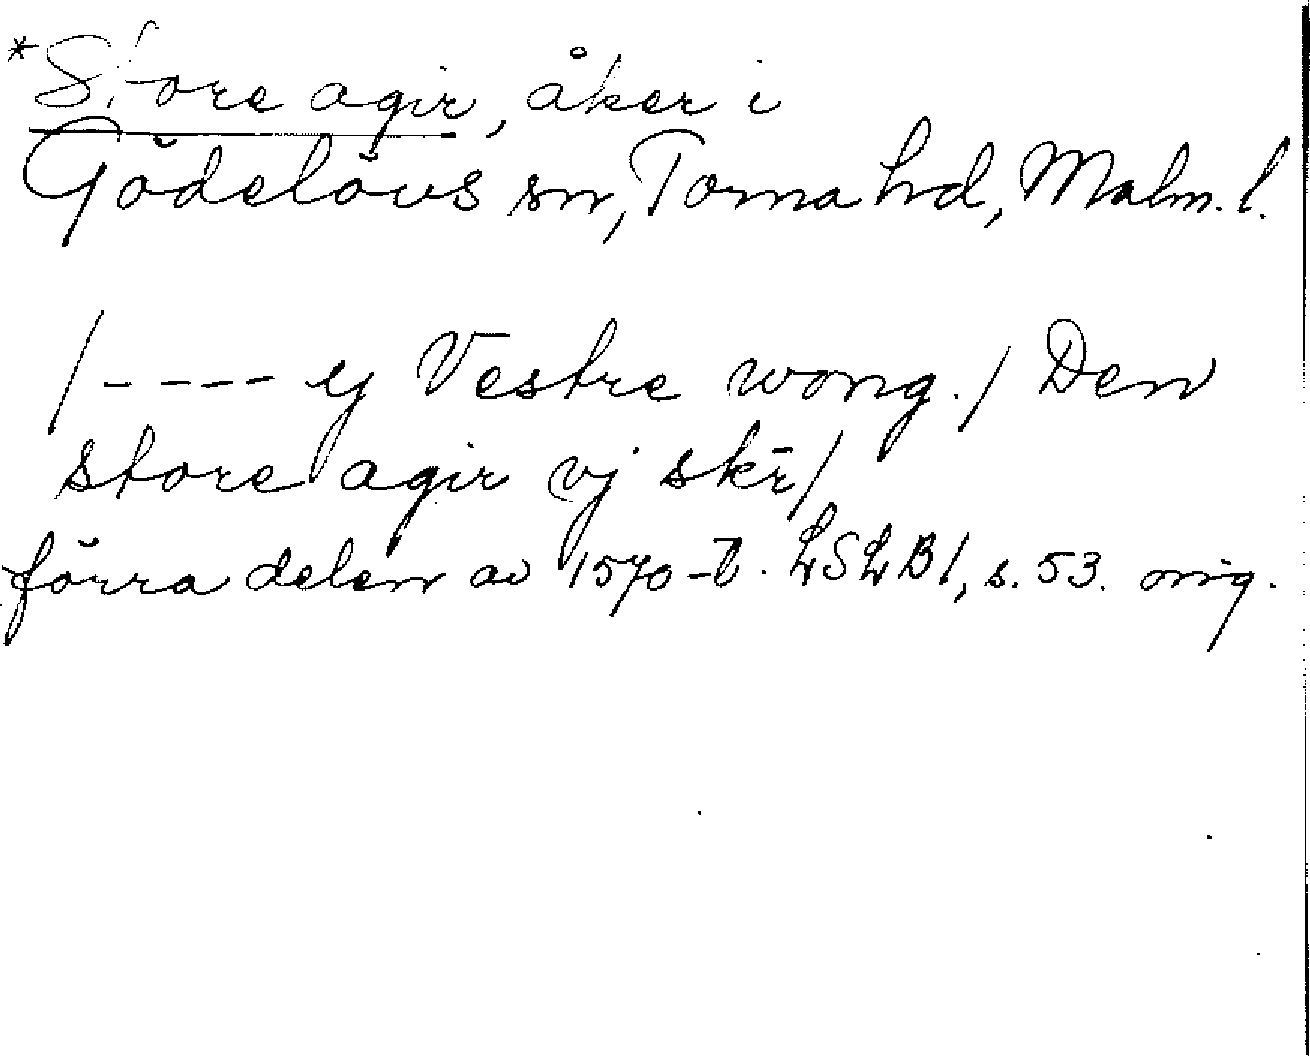 *Store agir, åker i
Gödelövs sn, Torna hd, Malm. l.
/---- ej Vestre wong./ Den
store agir vj skr̄/
förra delen av 1570-t. LSLB1, s. 53. orig.